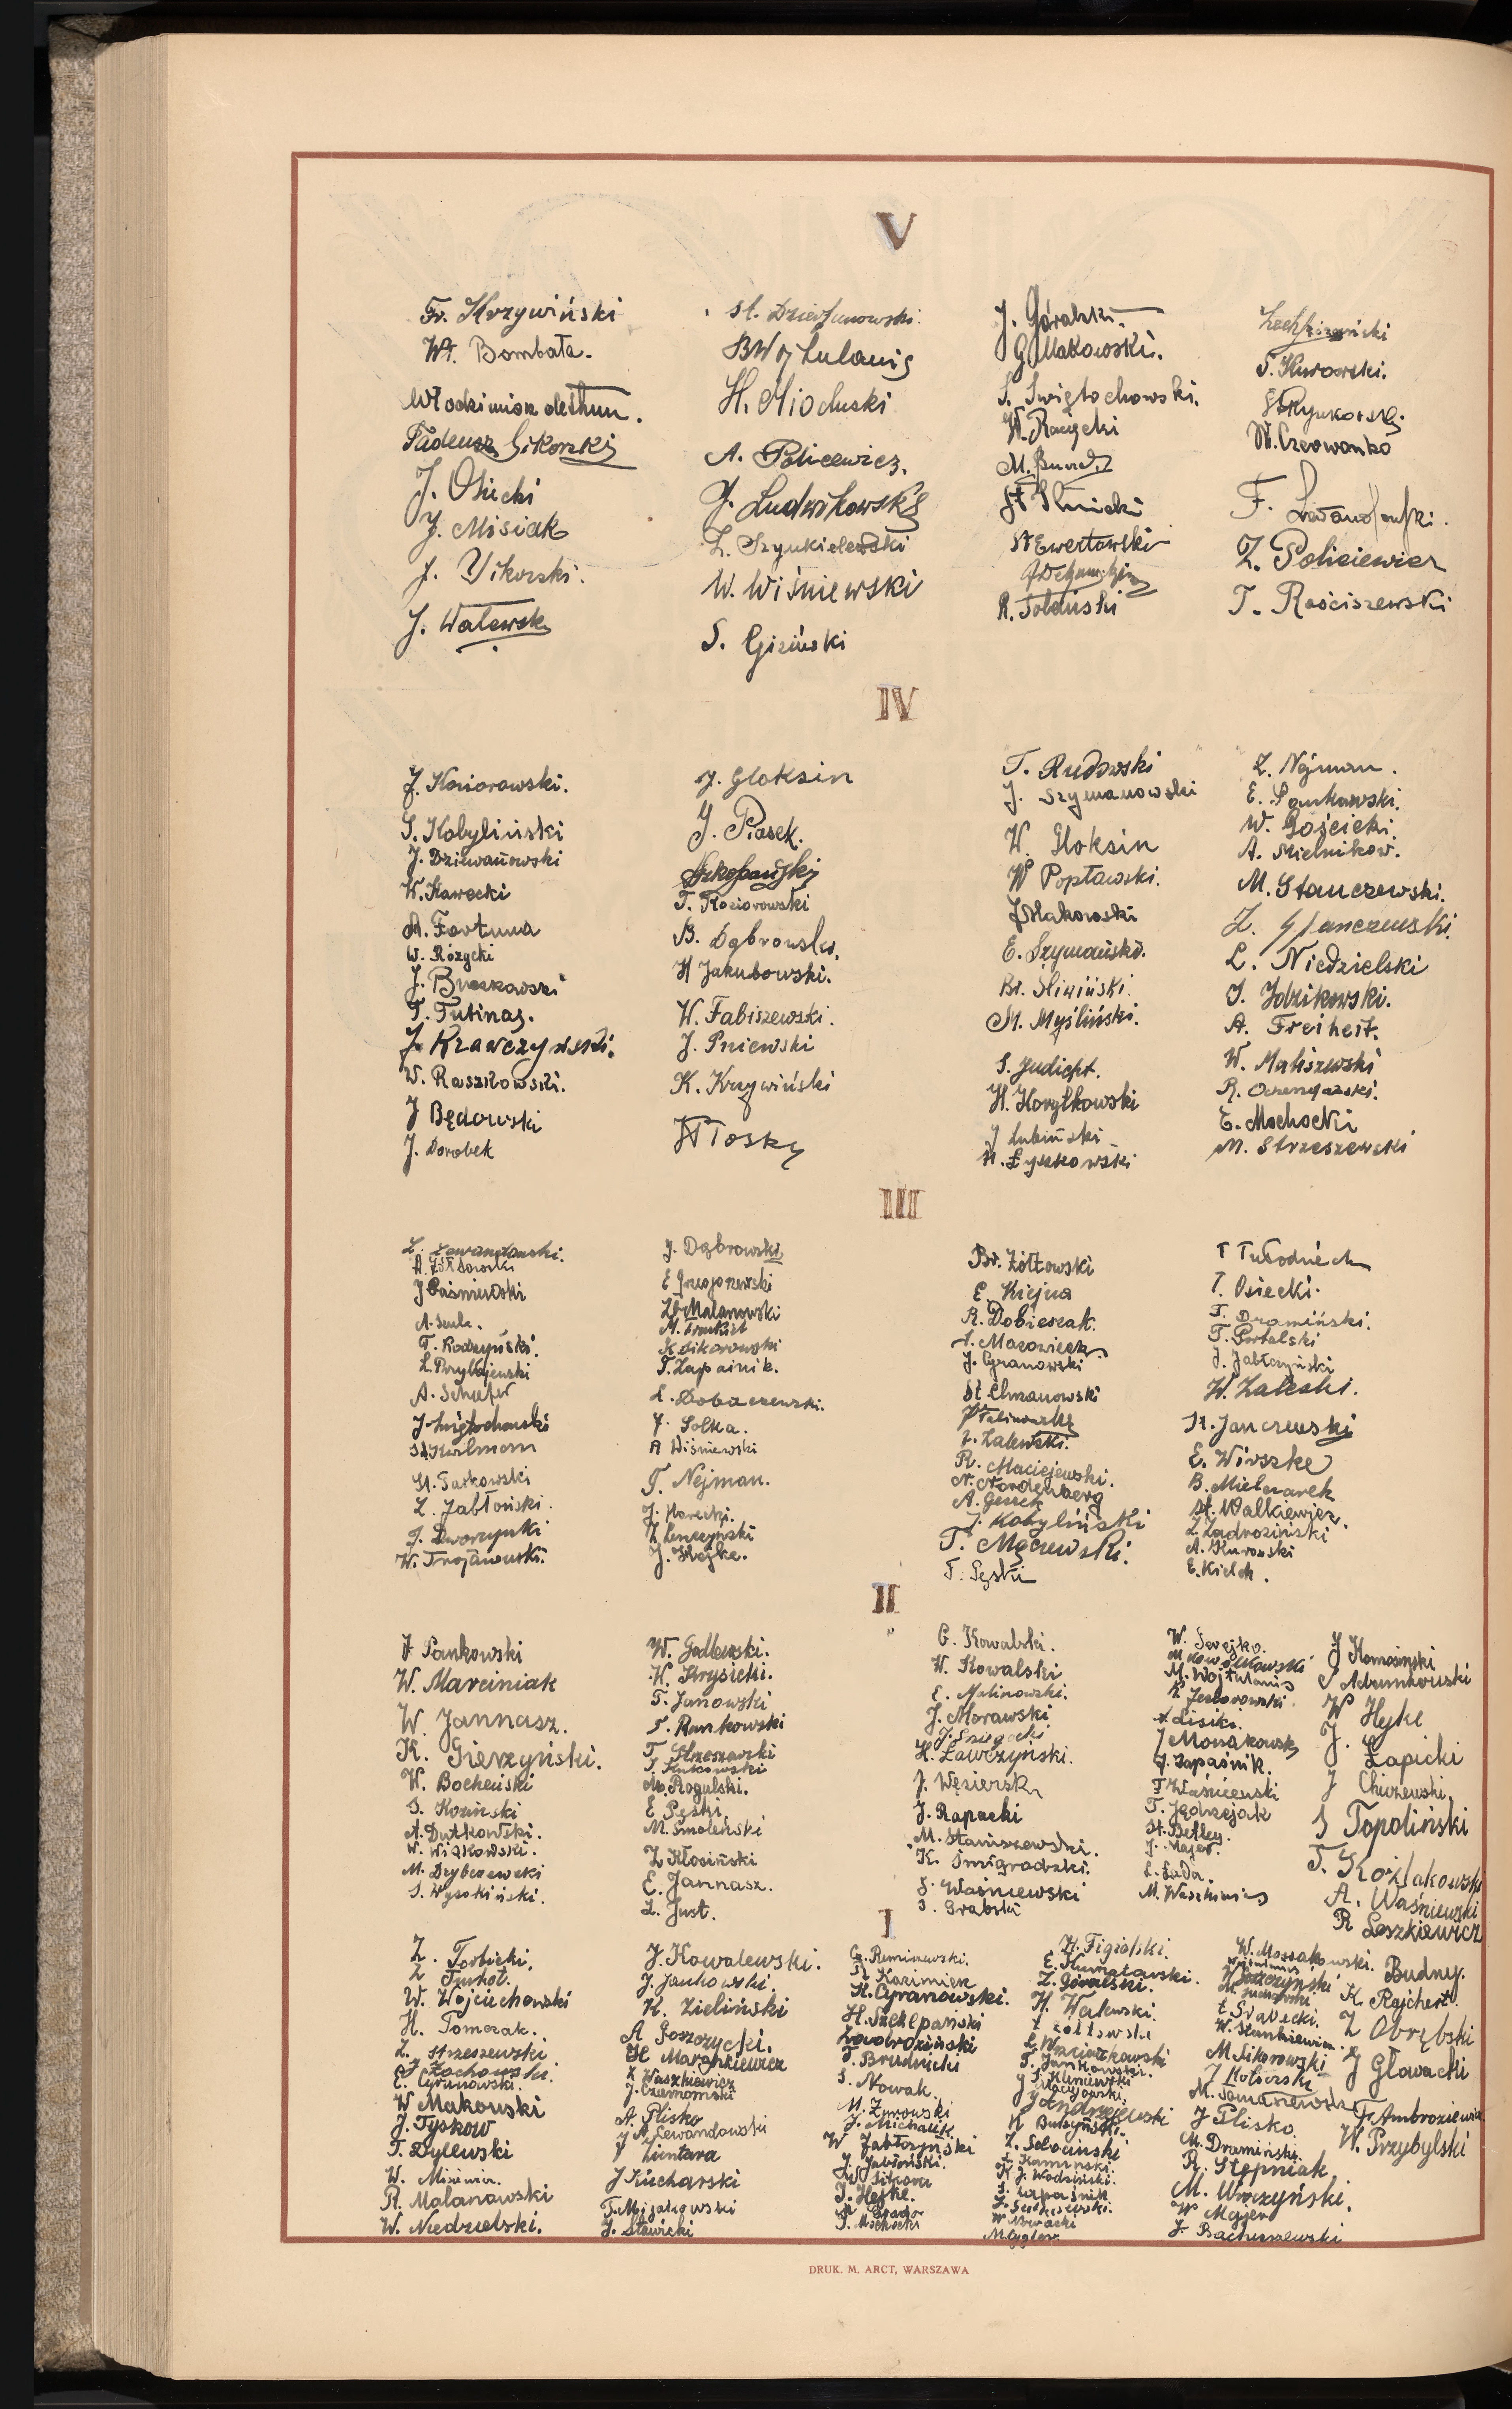 V
Fr. Krzywiński
Wł. Bombała.
Włodzimierz
Tadeusz Sikorski
J. Osiecki
J. Misiak
J. Sikorski.
J. Walewski
St.
B Wojtulanis
H. Mioduski
A. Policewicz.
J. Ludwikowski
Z. Szynkielewski
W. Wiśniewski
S. Giziński
J. Góralski.
G Makowski.
S. Świętochowski.
W. Racięcki
M.
St
St Ewertowski
R. Tołdński
S. Kurowski.
St. Czerwonko
F.
Z. Policiewicz
T. Rościszewski
IV
J. Koziorowski.
S. Kobyliński
J. Dziewanowski
W. Kawecki
A. Fortuna
W. Różycki
J. Brzozowski
T. Tutinas.
J. Krawczyński.
W. Raszkowski.
J Będowski
J. Dorobek
J. Gloksin
J. Piasek.
Szkopański
T. Koziorowski
B. Dąbrowski.
H Jakubowski.
W. Fabiszewski.
J. Pniewski
K. Krzywiński
T. Rudowski
J. Szymanowski
W. Gloksin
W Popławski.
J Makowski
E. Szymański.
Br. Śliwiński.
M. Myśliński.
S. Judicht.
H. Korytkowski
J Lubiński
H. Łyszkowski
Z. Nejman.
E. Pankowski.
W. Gościcki.
A. Mielnikow.
M. Stanczewski.
Z. Stanczewski.
L. Niedzielski
J. Idzikowski.
A. Freiheit.
W. Maliszewski
R.
E. Mochocki
M. Strzeszewski
III
L. Lewandowski.
A. Żółtowski
J Paśniewski
A. Szulc.
T. Rodzyński.
L. Przybojewski
A. Schaefer
J Świętochowski
St Kurlmann
St. Tarkowski
Z. Jabłoński.
J. Dworzyński
W. Trojanowski.
J. Dąbrowski
E Grzegorzewski
Zb Malanowski
M.
K Sikorowski
T. Zapaśnik.
L. Dobaczewski.
J. Solka.
A Wiśniewski
T. Nejman.
J. Korecki.
Z Leszczyński
J. Hejke.
Br. Żółtowski
E. Kiejna
R. Dobieszak.
S. Mazowiecki
J. Cyranowski
St. Chrzanowski
J. Zalewski.
R. Maciejewski.
N. Nordenberg
A. Gessek
J. Kobyliński
T. Mączewski.
T. Pęski
T Tułodziecki
T. Osiecki.
T. Dramiński.
T. Portalski
J. Jabłczyński
W. Zaleski.
St. Janczewski
E. Wirszke
B. Mielczarek
St. Walkiewicz.
Z. Zadroziński
A. Kurowski
E. Kielch.
II
J Pankowski
W. Marciniak
W. Jannasz.
K. Gierzyński.
W. Bocheński
S. Koziński
A. Dutkowski.
W. Wiśkowski.
M. Dejbczewski
S. Wysokiński.
W. Godlewski.
W. Krysicki.
T. Janowski
T. Rankowski
T. Strzeszewski
T. Kutkowski
M. Rogulski.
E Pęski
M. Smoleński
Z Kłosiński
E. Jannasz.
L. Just.
C. Kowalski.
W. Kowalski
E. Malinowski.
J. Morawski
J. Śniegocki
H. Ławczyński.
J. Węsierski
J. Rapacki
M. Staniszewski.
K. Śmigrodzki.
S. Waśniewski
S. Grabski
W. Serejko.
M Kowalkowski
M. Wojtulanis
K Jeziorowski.
Lisiki.
J Monakowski
J. Zapaśnik.
T Waśniewski
T. Jędrzejak
St. Betley.
J. Majer.
L. Łada.
M. Waszkinis
J Komosiński
S Adamkowski
W Hejke
J. Łapicki
J Chiszewski
S Topoliński
T. Kożlakowski
A. Waśniewski
R Leszkiewicz
I
Z. Torbicki.
Z Turkot.
W. Wojciechowski
H. Tomczak.
Z. Strzeszewski
J. Żochowski.
E. Cyranowski.
W Makowski
J. Tyskow
T. Dylewski
W. Misiewicz.
R. Malanowski
W. Niedzielski.
J. Kowalewski.
J. Jankowski.
K. Zieliński
A Goszczycki.
H Marchkiewicz
Z Waszkiewicz
J. Czarnomski
A. Plisko
J N. Lewandowski
J Zientara
J Kucharski
T. Mijakowski
J. Sławicki
Cz. Reminiewski.
R Kazimier
K. Cyranowski.
H. Szczepański
Zawodroziński
T. Brudnicki
S. Nowak.
M. Zmowski
J. Michalik
W Jabłczyński
J. Jabłoński.
W Sikora
J. Hejke.
S. Mochocki
H. Figielski.
E. Kurnatowski.
Z. Góralski.
H. Walewski.
Z Żółtowski
E. Wojciechowski
T. Jankowski.
S. Kliniewski
J Maciejowski
J Andrzejewski
K Budzyński.
Z. Sobociński
L. Kamiński
K J. Wodziński.
S. Zapaśnik
W Nowacki
M. Cygler.
W. Mossakowski.
Wojtulanis
W Jaszczyński
Sławecki.
W. Stankiewicz.
M. Sikorowski
J Kolberski
M. Tomaszewski
J Plisko.
M. Dramiński.
R. Stępniak
M. Wiorczyński.
W Majer
J. Bachurzewski
Budny.
K. Rejchert.
Z Obrębski
J Głowacki
F. Ambroziewicz
W. Przybylski
DRUK. M. ARCT, WARSZAWA